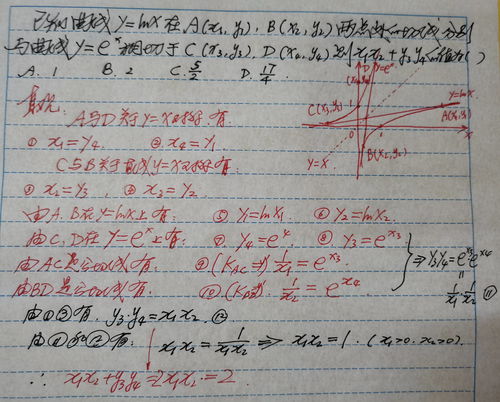 已知曲线 y=lnx 在 A(x₁,y₁), B(x₂,y₂) 两点处的切线分别
与曲线 y=eˣ 相切于 C(x₃,y₃), D(x₄,y₄) 则 x₁x₂+y₃y₄ 的值为( )
A. 1 B. 2 C. 5/2 D. 17/4
y=eˣ
(x₄,y₄)
D
C(x₃,y₃)
y=lnx
A(x₁,y₁)
0
x
B(x₂,y₂)
y=x
A与D关于y=x对称 有.
① x₁=y₄. ② x₄=y₁
C与B关于直线y=x对称有.
③ x₂=y₃ ④ x₃=y₂
由A.B在y=lnx上有: ⑤ y₁=lnx₁ ⑥ y₂=lnx₂.
由C.D在y=eˣ上有: ⑦ y₄=e^x₄ ⑧ y₃=e^x₃
由AC是公切线有. ⑨ (K_AC=) 1/x₁=e^x₃
由BD是公切线有: ⑩ (K_BD=) 1/x₂=e^x₄
⇒ y₃y₄=e^x₃e^x₄
= 1/x₁·1/x₂ ⑪
由①③有. y₃·y₄=x₁x₂ ⑫
由⑪和⑫有: x₁x₂=1/x₁x₂ ⇒ x₁x₂=1. (x₁>0. x₂>0).
∴ x₁x₂+y₃y₄=2x₁x₂=2.